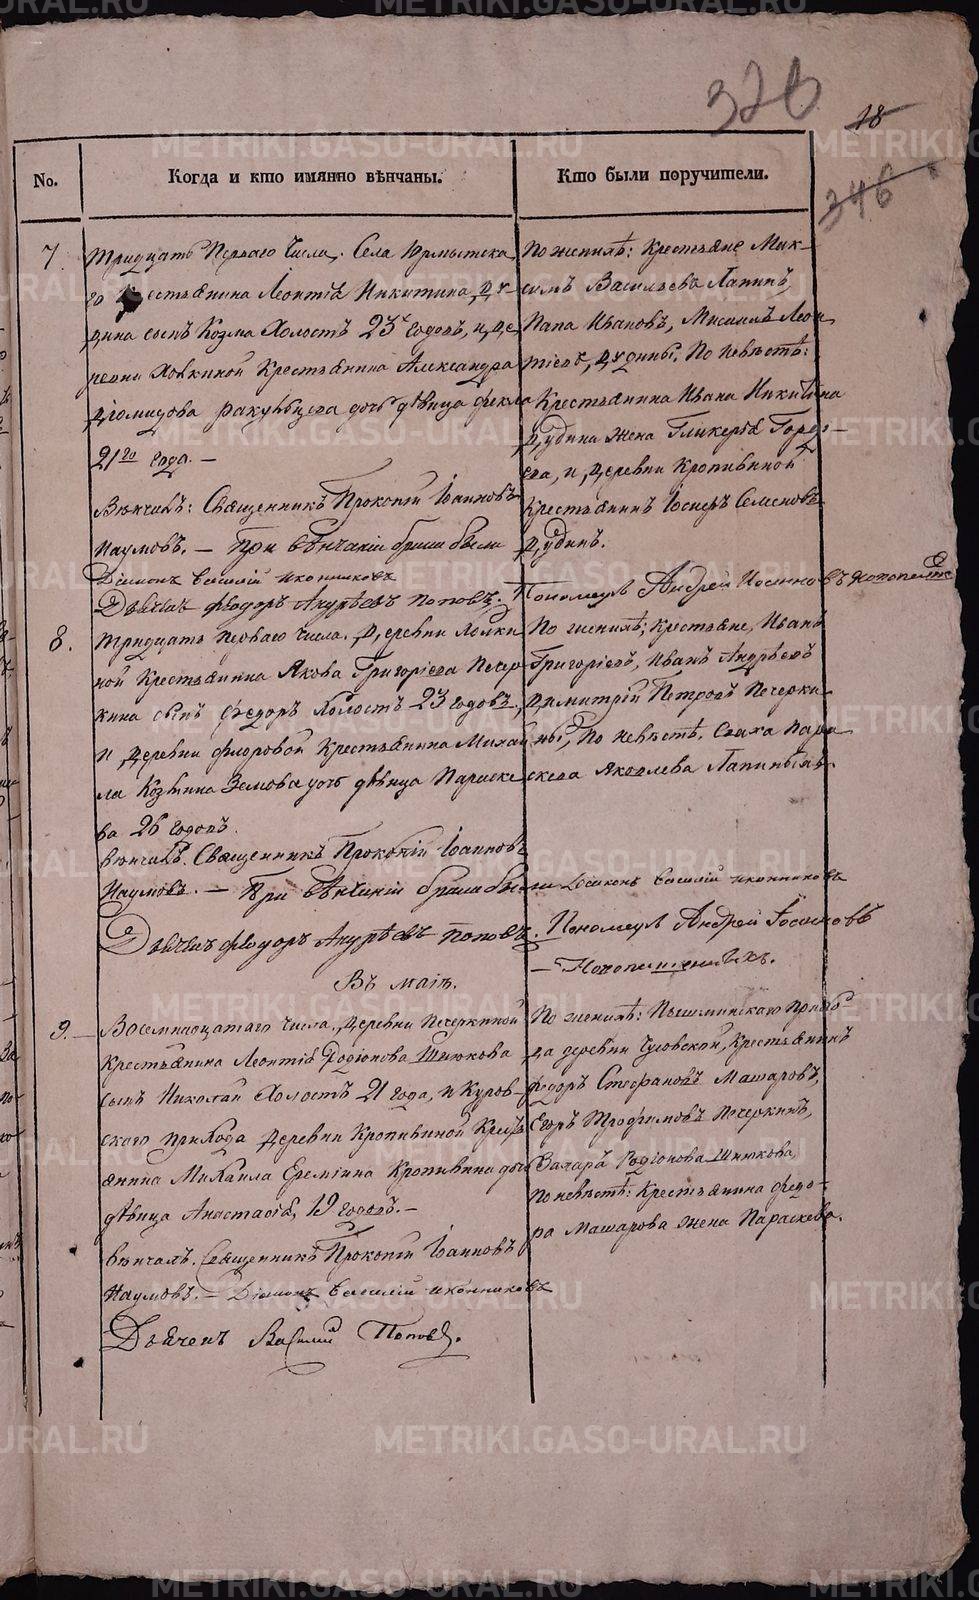 326
18
346
No.
Когда и кто имянно вѣнчаны.
Кто были поручители.
7.
Тридцать Перваго Числа. Села Юрмытска
го Крестьянина Леонтія Никитина Ду-
дина сынъ Козма Холостъ 23 годовъ, и де
ревни Ховкиной Крестьянина Александра
Діомидова дочь дѣвица Фекла
21го года. —
Вѣнчалъ: Священникъ Прокопій Іоанновъ
Наумовъ. — При вѣнчаніи брака были
Діаконъ Василій Иконниковъ
Дьячекъ Феодоръ Андрѣевъ Поповъ.
По женихѣ: Крестьяне Мак-
симъ Васильевъ Лапинъ,
Иановъ, Михаилъ Леон
тіевъ, Дудины. По невѣстѣ:
Крестьянина Ивана Никитина
Дудина жена Гликерія
ева, и Деревни Кропивиной
Крестьянинъ Іосифъ Семеновъ
Дудинъ.
Пономарь Андрей Іосифовъ
8.
Тридцать перваго числа. Деревни
ной Крестьянина Якова Григоріева Печер
кина сынъ Федоръ Холостъ 23 годовъ,
и деревни Флоровой Крестьянина Михаи
ла Козмина Земова дочь дѣвица Параске
ва 26 годовъ.
вѣнчалъ. Священникъ Прокопій Іоанновъ
Наумовъ. — При вѣнчаніи брака были
Дьячекъ Феодоръ Андрѣевъ Поповъ.
По женихѣ; Крестьяне, Иванъ
Григоріевъ, Иванъ Андрѣевъ
Димитрій Петровъ Печерки-
ны, По невѣстѣ. Сваха Пара
скева Яковлева Лапиныхъ.
Діаконъ Василій Иконниковъ
Пономарь Андрей Іосифовъ
В маіѣ.
9.
Восемнадцатаго числа. Деревни Печеркиной
Крестьянина Леонтія Родіонова Шнюкова
сынъ Николай Холостъ 21 года, и Куров-
скаго прихода Деревни Кропивиной Кресть
янина Михаила Еремѣина Кропивина дочь
дѣвица Анастасія, 19 годовъ. —
вѣнчалъ. Священникъ Прокопій Іоанновъ
Наумовъ. — Діаконъ Василій Иконниковъ
Дьячекъ Василий Поповъ.
По женихѣ: Пышминскаго прихо-
да деревни Чуповской, Крестьянинъ
Федоръ Стефановъ Машаровъ,
Егоръ Трофимовъ Печеркинъ,
Захаръ Родіонова Шнюкова
По невѣстѣ: Крестьянина Федо-
ра Машарова жена Параскева.
METRIKI.GASO-URAL.RU